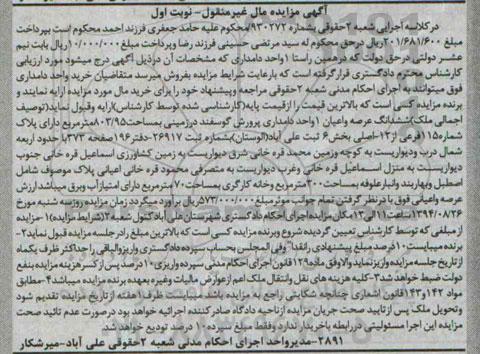 آگهی مزایده مال غیرمنقول - نوبت اول
در کلاسه اجرایی شعبه ۲حقوقی بشماره ۹۳۰۲۷۲/محکوم علیه حامد جعفری فرزند احمد محکوم است بپرداخت
مبلغ ۲۰۱/۶۸۱/۶۰۰ریال درحق محکوم له سید مرتضی حسینی فرزند رضا وپرداخت مبلغ ۱۰/۰۰۰/۰۰۰ریال بابت نیم
عشر دولتی درحق دولت که درهمین راستا ۱واحد دامداری که مشخصات آن درذیل آگهی درج میشود مورد ارزیابی
کارشناس محترم دادگستری قرارگرفته است که بارعایت شرایط مزایده بفروش میرسد متقاضیان خرید واحد دامداری
فوق میتوانند به اجرای احکام مدنی شعبه ۲حقوقی مراجعه وپیشنهاد خود را برای خرید مال مورد مزایده ارایه نمایند و
برنده مزایده کسی است که بالاترین قیمت را ازقیمت پایه(کارشناسی شده توسط کارشناس)ارایه وقبول نماید(توصیف
اجمالی ملک:ششدانگ عرصه واعیان ۱واحد دامداری پرورش گوسفند درزمینی بمساحت۸۰۳/۹۵مترمربع دارای پلاک
شماره۱۱۵فرعی از۱۲-اصلی بخش۶ ثبت علی آباد(الوستان)بشماره ثبت ۲۶۹۱۷-دفتر۱۹۶صفحه ۳۷۳با حدود اربعه
شمال درب ودیواریست به کوچه وزمین محمد قره خانی شرق دیواریست به زمین کشاورزی اسماعیل قره خانی جنوب
دیواریست به منزل اسماعیل قره خانی وغرب دیواریست به متصرفی محمود قره خانی اعیانی پلاک موصوف شامل
اصطبل وبهاربند وانبارعلوفه بمساحت ۳۰۰مترمربع وخانه کارگری بمساحت۷۰مترمربع دارای امتیازآب وبرق میباشد ارزش
عرصه واعیانی فوق با درنظر گرفتن تمام جوانب موثرمبلغ ۵۷۲/۰۰۰/۰۰۰ریال برآورد میگردد زمان مزایده روزسه شنبه مورخ
۱۳۹۴/۰۸/۲۶ساعت۱۱الی۱۳مکان مزایده اجرای احکام دادگستری شهرستان علی آبادکتول شعبه۲(شرایط مزایده)۱-مزایده
از مبلغی که توسط کارشناس تعیین گردیده شروع وبرنده مزایده کسی است که بالاترین مبلغ رادر جلسه مزایده قبول نماید۲-
برنده میبایست۱۰درصد مبلغ پیشنهادی رانقدا"وفی المجلس بحساب سپرده دادگستری واریزوالباقی را حداکثر ظرف یکماه
از تاریخ جلسه مزایده واریزنماید والاوفق ماده ۱۲۹قانون اجرای احکام مدنی سپرده واریزی۱۰درصد پس از کسرهزینه مزایده بنفع
دولت ضبط خواهد شد۳-کلیه هزینه های نقل وانتقال ملک اعم ازعوارض مالیات وغیره بعهده برنده مزایده میباشد۴-مطابق
مواد ۱۴۲و۱۴۳قانون اشعاری چنانچه شکایتی راجع به مزایده باشد میبایست ظرف۱هفته از تاریخ مزایده تقدیم شود
وتحویل ملک پس از تایید صحت جریان مزایده ازناحیه دادگاه صادرکننده اجرائیه خواهد بود درصورت عدم تائید صحت
مزایده این اجرا مسئولیتی دررابطه باخریدار ندارد وفقط مبلغ سپرده۱۰درصد تودیع خواهد شد.
۳۸۹۱-مدیرواحد اجرای احکام مدنی شعبه ۲حقوقی علی آباد-میرشکار